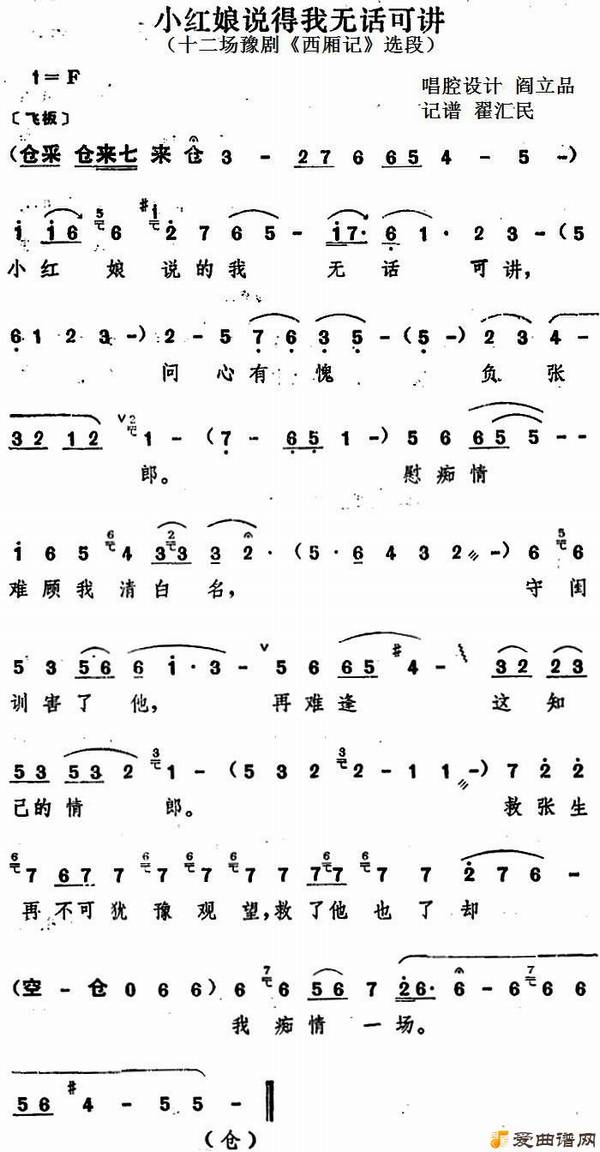 小红娘说得我无话可讲
（十二场豫剧《西厢记》选段）
1=F
唱腔设计 阎立品
记谱 翟汇民
〔飞板〕
（仓采 仓来七 来 仓 3 - 2 7 6 6 5 4 - 5 -）
1 1 6 6 2 7 6 5 - 1 7· 6 1· 2 3 -（5
小 红 娘 说 的 我 无 话 可 讲，
6 1 2 3 -）2 - 5 7 6 3 5 -（5 -）2 3 4 -
问 心 有 愧 负 张
3 2 1 2 1 -（7 - 6 5 1 -）5 6 6 5 5 - -
郎。 慰 痴 情
1 6 5 4 3 3 3 2·（5· 6 4 3 2 -）6 6
难 顾 我 清 白 名， 守 闺
5 3 5 6 6 1· 3 - 5 6 6 5 #4 - 3 2 2 3
训 害 了 他， 再 难 逢 这 知
5 3 5 3 2 1 -（5 3 2 2 - 1 1 -）7 2 2
己 的 情 郎。 救 张 生
7 6 7 7 7 7 7 7 7 7 7 7 2 7 6 -
再 不 可 犹 豫 观 望，救 了 他 也 了 却
（空 - 仓 0 6 6）6 6 5 6 7 2 6· 6 - 6 6
我 痴 情 一 场。
5 6 #4 - 5 5 -
（仓）
爱曲谱网